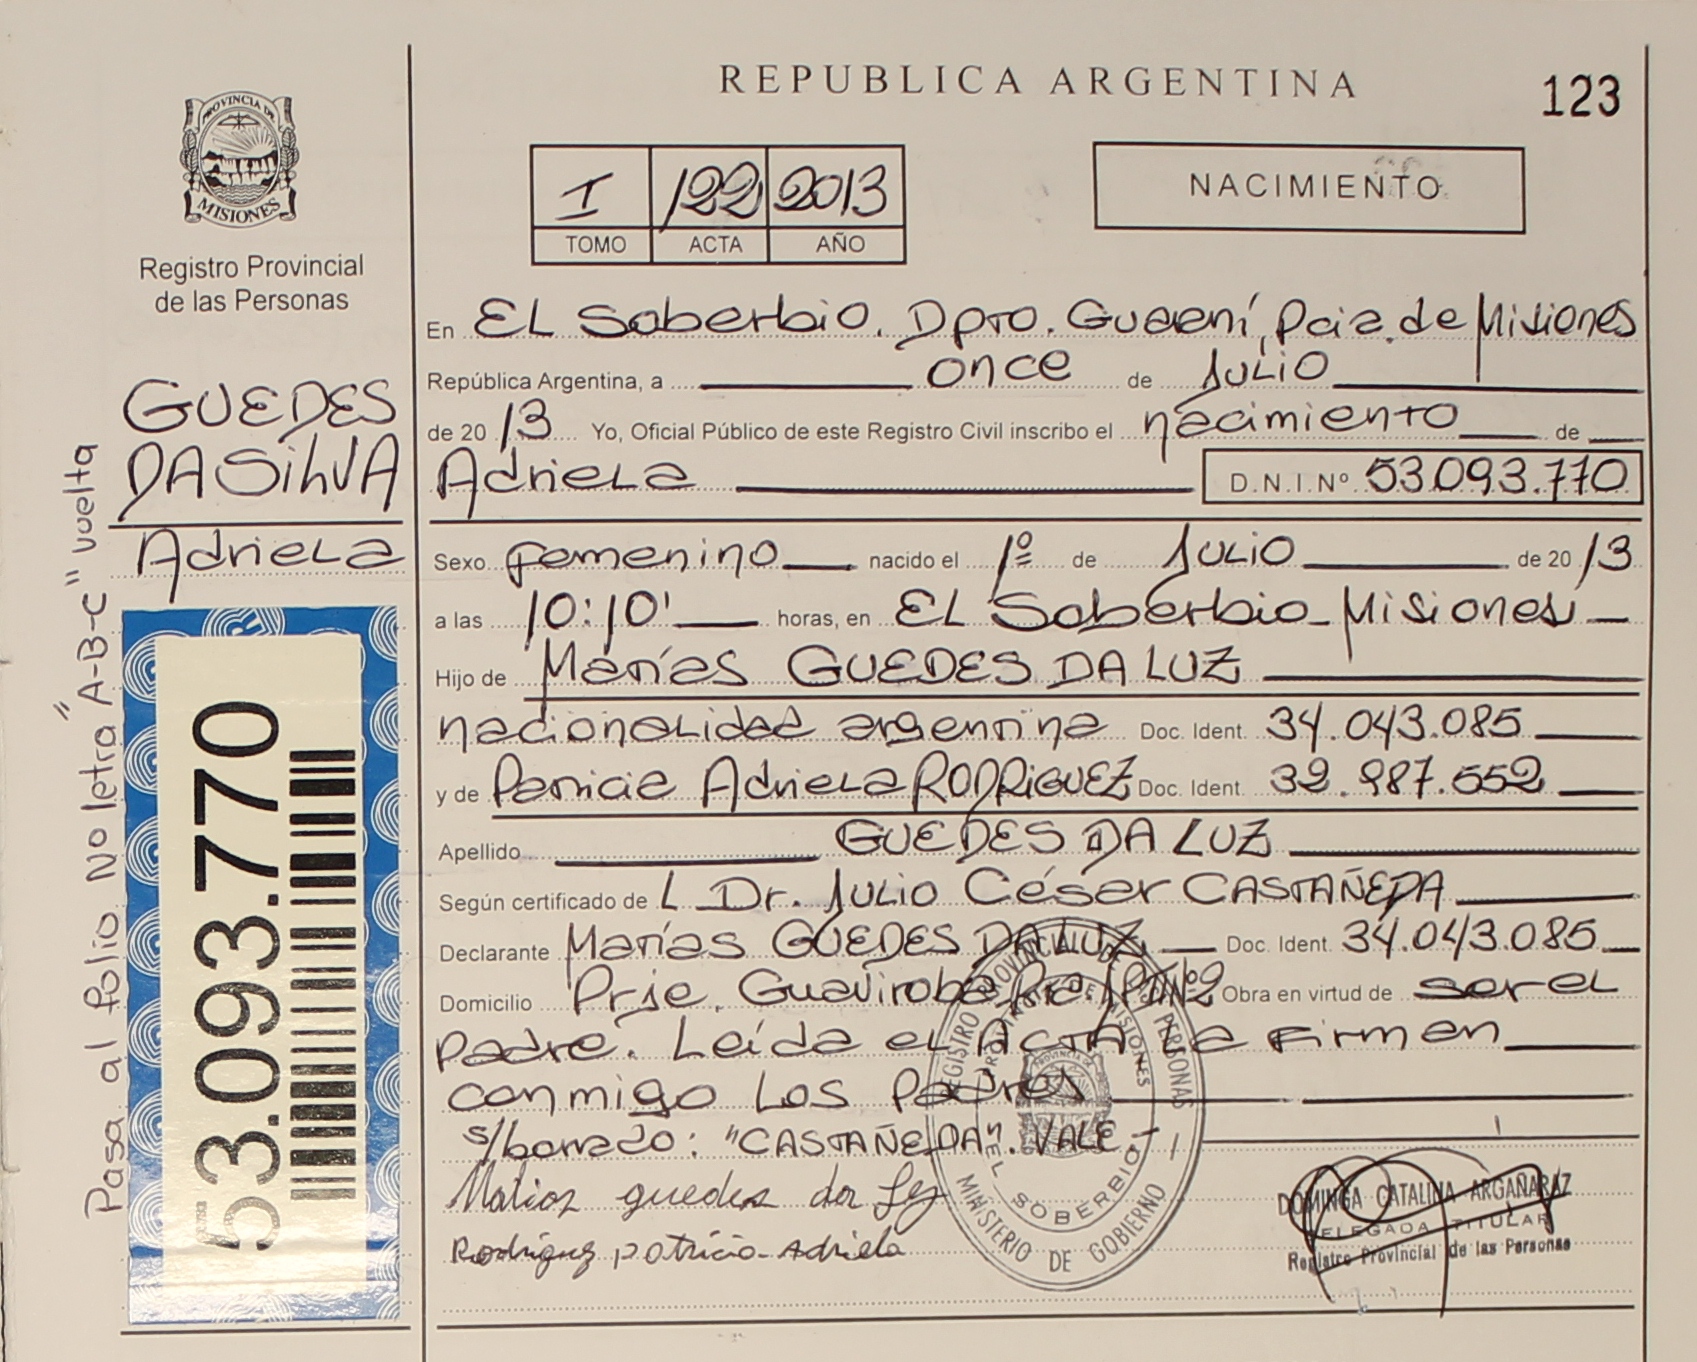 REPUBLICA ARGENTINA
123
PROVINCIA DE
MISIONES
Registro Provincial
de las Personas
I 122 2013
TOMO ACTA AÑO
NACIMIENTO
GUEDES
DA SILVA
Adriela
Pasa al folio No letra "A-B-C" vuelta
53.093.770
En EL Soberbio. Dpto. Guaraní, Pcia. de Misiones
República Argentina, a once de JULIO
de 2013 Yo, Oficial Público de este Registro Civil inscribo el nacimiento de
Adriela D.N.I.Nº 53.093.770
Sexo Femenino nacido el 1º de JULIO de 2013
a las 10:10' horas, en EL Soberbio - Misiones
Hijo de Matías GUEDES DA LUZ
nacionalidad argentina Doc. Ident. 34.043.085
y de Patricia Adriela RODRIGUEZ Doc. Ident. 32.987.552
Apellido GUEDES DA LUZ
Según certificado de L Dr. Julio César CASTAÑEDA
Declarante Matías GUEDES DA LUZ Doc. Ident. 34.043.085
Domicilio Prje. Guaviroba Obra en virtud de ser el
padre. Leída el Acta la Firman
conmigo los Padres
s/borrado: "CASTAÑEDA". VALE
Matias guedes da
Rodriguez patricia Adriela
REGISTRO PROVINCIAL DE LAS PERSONAS
PROVINCIA DE MISIONES
EL SOBERBIO
MINISTERIO DE GOBIERNO
DOMINGA CATALINA ARGAÑARAZ
DELEGADA TITULAR
Registro Provincial de las Personas